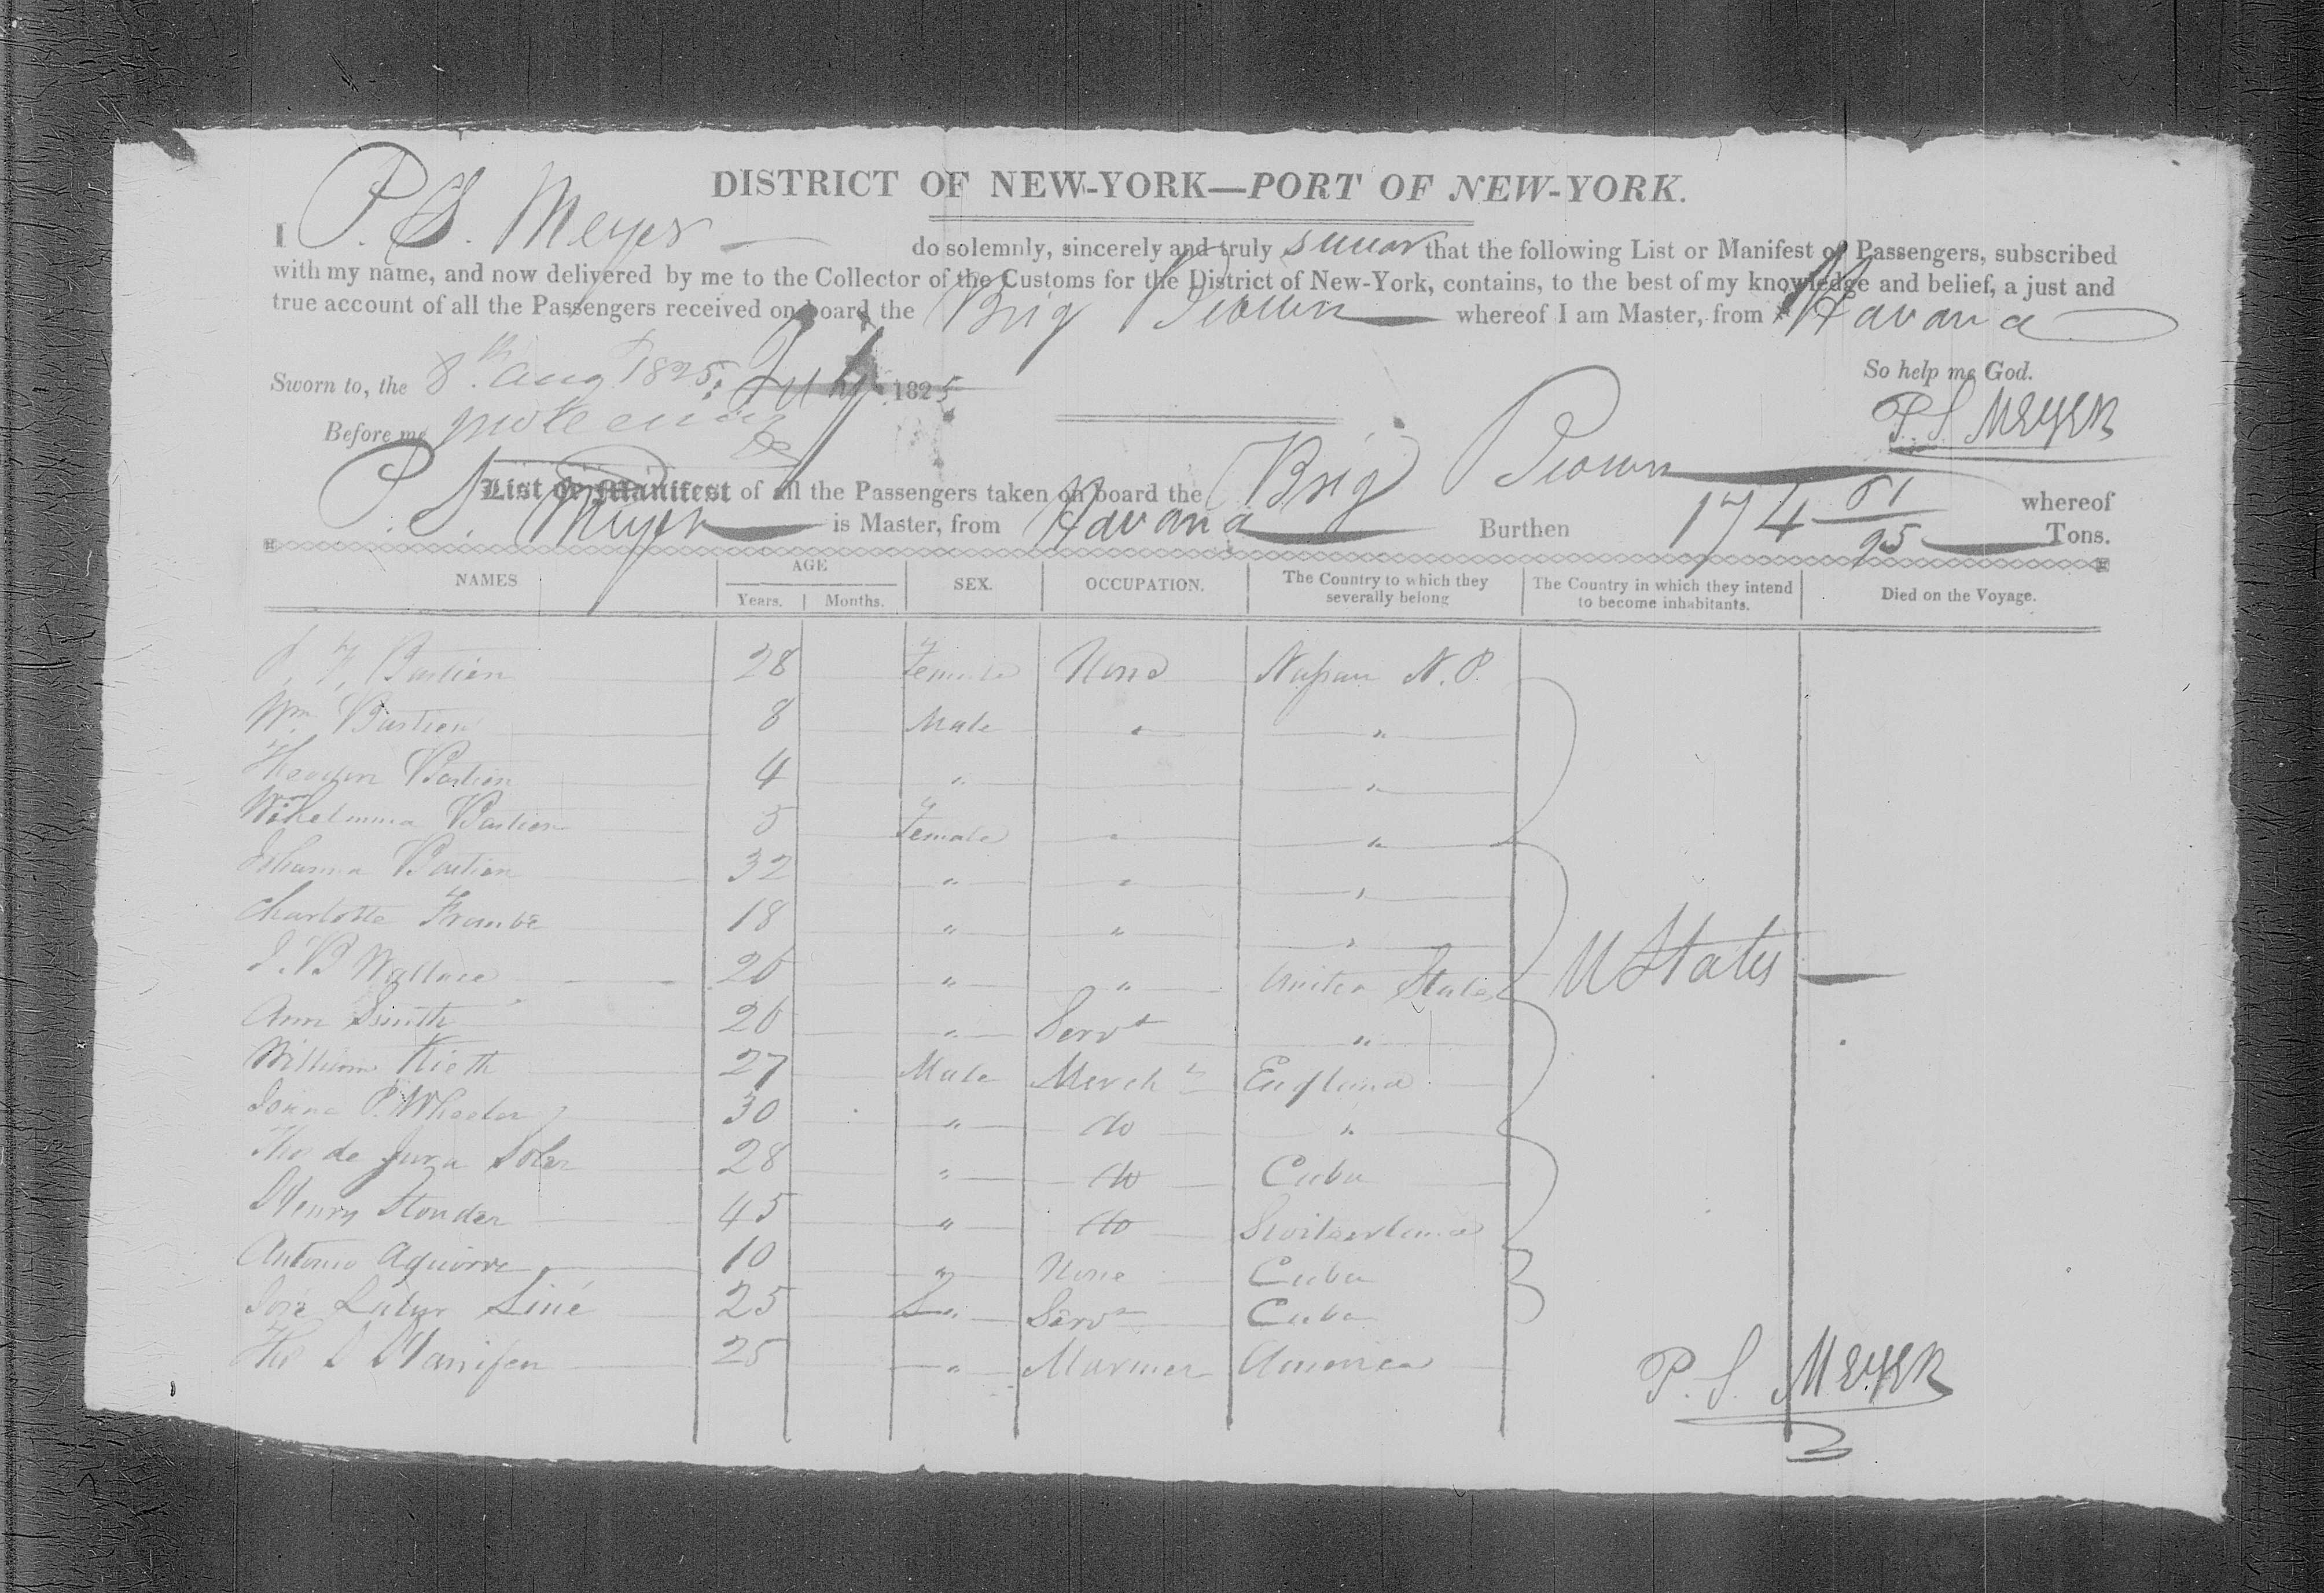 DISTRICT OF NEW-YORK—PORT OF NEW-YORK.
I P. S. Meyer do solemnly, sincerely and truly swear that the following List or Manifest of Passengers, subscribed
with my name, and now delivered by me to the Collector of the Customs for the District of New-York, contains, to the best of my knowledge and belief, a just and
true account of all the Passengers received on board the Brig Brown whereof I am Master, from Havana
So help me God.
Sworn to, the 8th Aug 1825. July 1825
P. S. MEYER
Before me
List or Manifest of all the Passengers taken on board the Brig Brown whereof
P. S. Meyer is Master, from Havana Burthen 174 51/95 Tons.
NAMES AGE Years. Months. SEX. OCCUPATION. The Country to which they severally belong The Country in which they intend to become inhabitants. Died on the Voyage.
Bastien 28 Female None Nassau N. P.
Wm. Bastien 8 Male " "
Bastien 4 " "
Wilhelmina Bastien 5 Female " "
Johanna Bastien 32 " " "
Charlotte Frombe 18 " " "
J. B Wallace 26 " " United States U States
Ann Smith 26 " Servt "
William Kieth 27 Male Mercht England
P. Wheeler 30 " do "
de Jura Soler 28 " do Cuba
Henry Stouder 45 " do Switzerland
Antonio Aguirre 10 " None Cuba
José Siné 25 " Servt Cuba
25 " Mariner America
P. S. MEYER